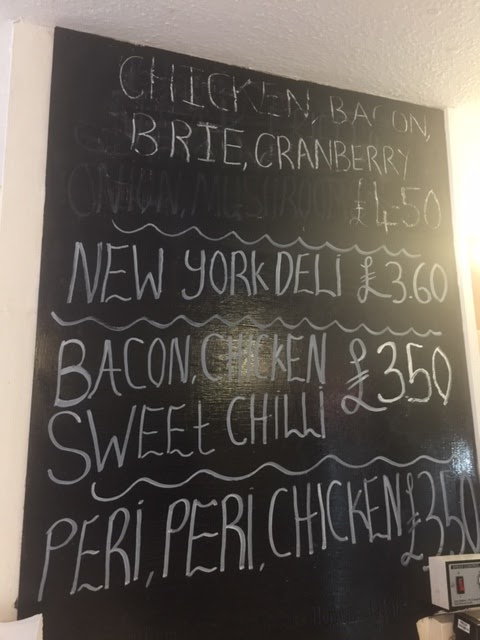 CHICKEN, BACON,
BRIE, CRANBERRY
ONION, MUSHROOM £4.50
NEW YORK DELI £3.60
BACON, CHICKEN £350
SWEEt CHILLi
PERi, PERi, CHICKEN £350